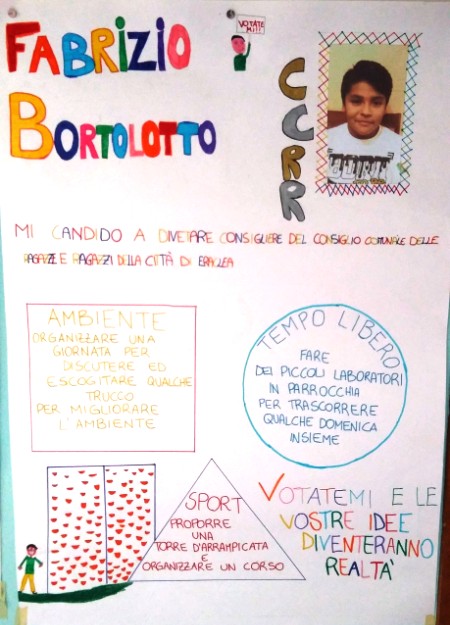 FABRIZIO
BORTOLOTTO
VOTATE
MI!!
CCRR
MI CANDIDO A DIVETARE CONSIGLIERE DEL CONSIGLIO COMUNALE DELLE
RAGAZZE E RAGAZZI DELLA CITTÀ DI ERACLEA
AMBIENTE
ORGANIZZARE UNA
GIORNATA PER
DISCUTERE ED
ESCOGITARE QUALCHE
TRUCCO
PER MIGLIORARE
L'AMBIENTE
TEMPO LIBERO
FARE
DEI PICCOLI LABORATORI
IN PARROCCHIA
PER TRASCORRERE
QUALCHE DOMENICA
INSIEME
SPORT
PROPORRE
UNA
TORRE D'ARRAMPICATA
E
ORGANIZZARE UN CORSO
VOTATEMI E LE
VOSTRE IDEE
DIVENTERANNO
REALTA'